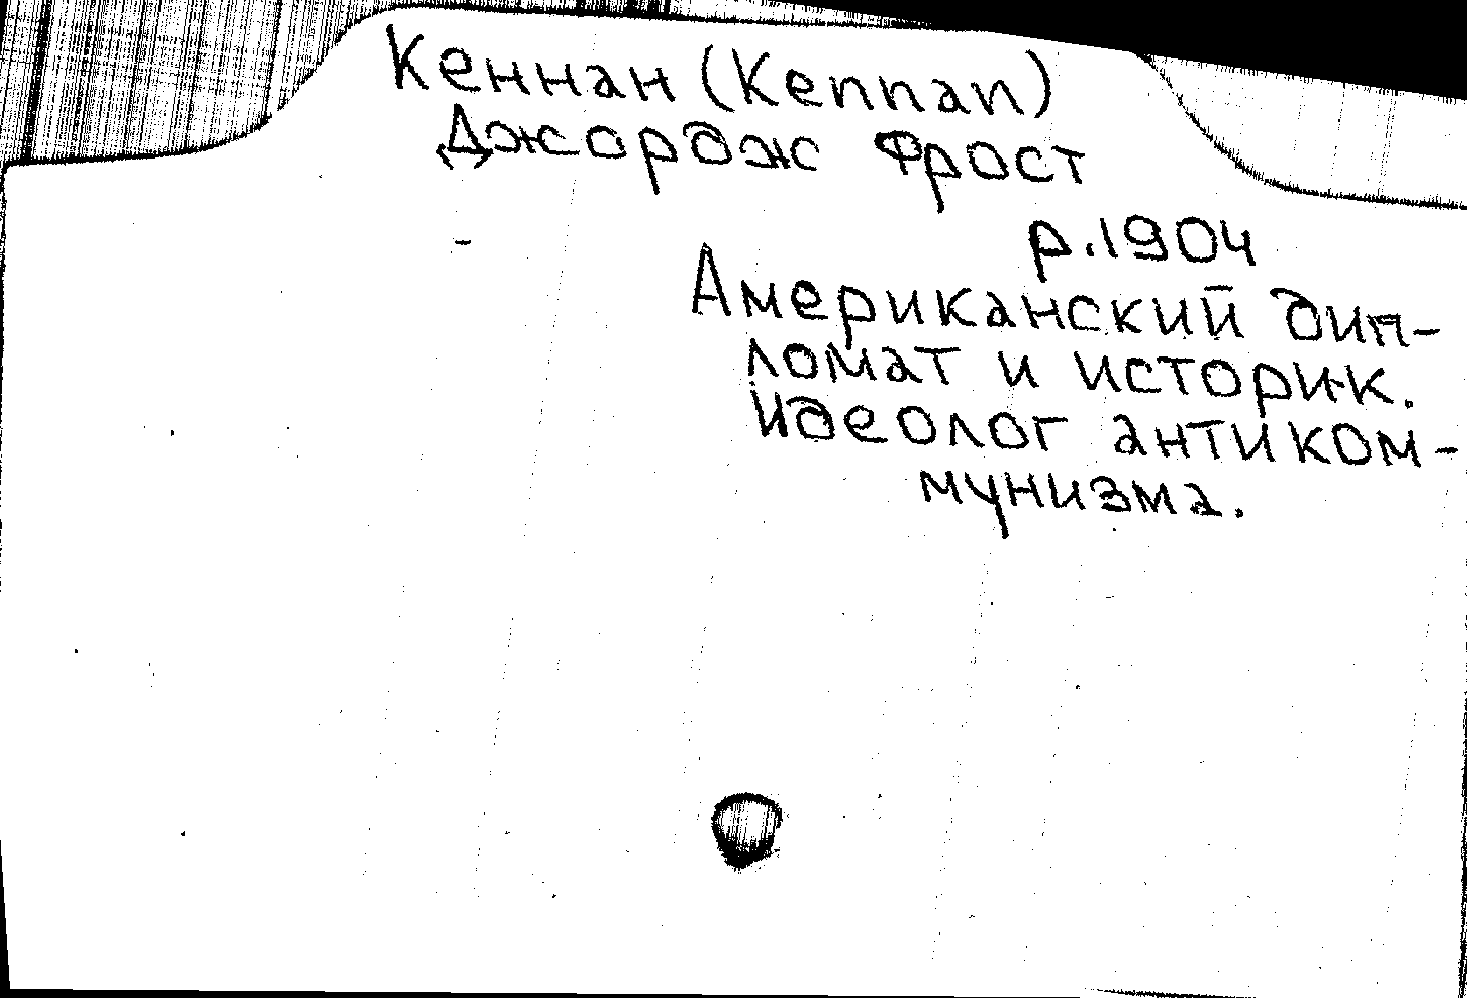 Кеннан (Kennan)
Джордж Фрост
р.1904
Американский дип-
ломат и историк.
Идеолог антиком-
мунизма.